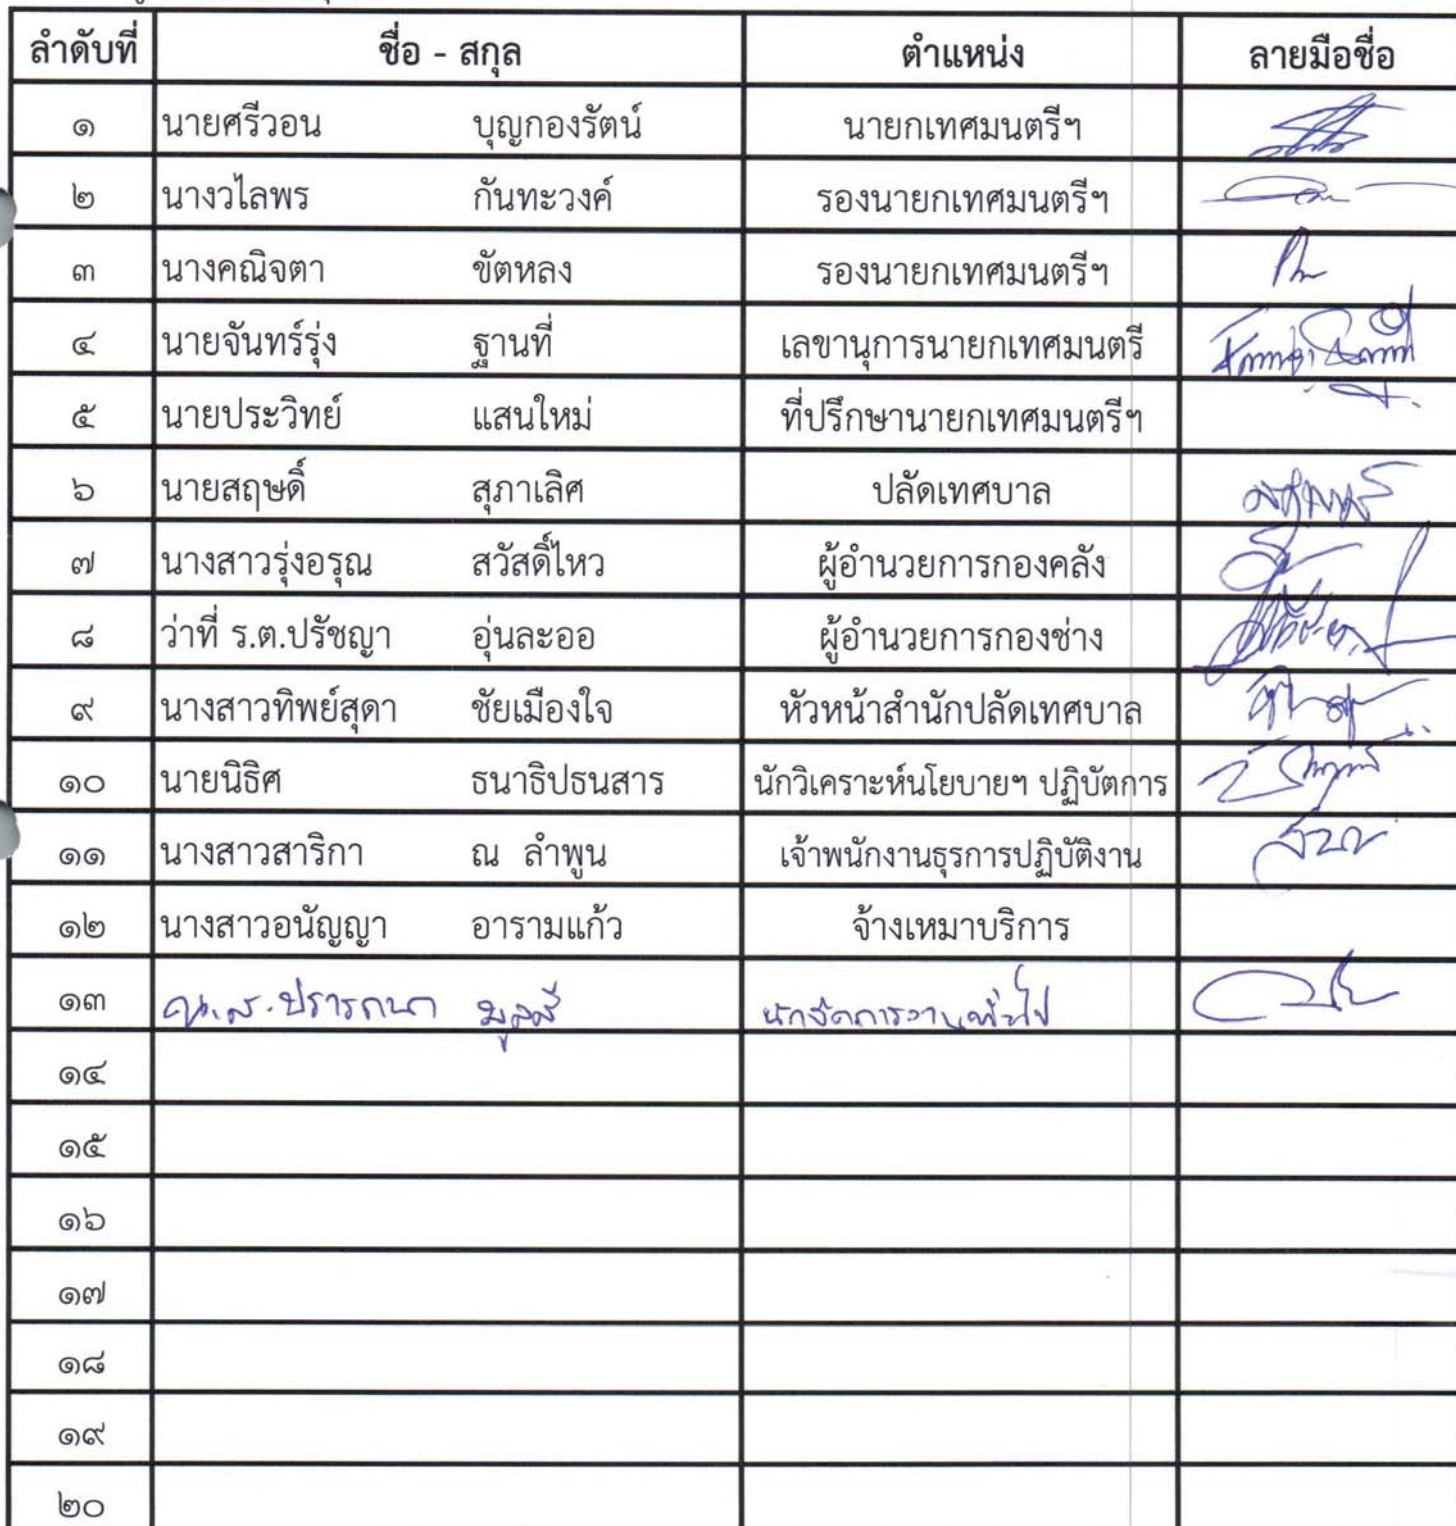 ลำดับที่ ชื่อ - สกุล ตำแหน่ง ลายมือชื่อ
๑ นายศรีวอน บุญกองรัตน์ นายกเทศมนตรีฯ
๒ นางวไลพร กันทะวงค์ รองนายกเทศมนตรีฯ
๓ นางคณิจตา ขัตหลง รองนายกเทศมนตรีฯ
๔ นายจันทร์รุ่ง ฐานที่ เลขานุการนายกเทศมนตรี
๕ นายประวิทย์ แสนใหม่ ที่ปรึกษานายกเทศมนตรีฯ
๖ นายสฤษดิ์ สุภาเลิศ ปลัดเทศบาล
๗ นางสาวรุ่งอรุณ สวัสดิ์ไหว ผู้อำนวยการกองคลัง
๘ ว่าที่ ร.ต.ปรัชญา อุ่นละออ ผู้อำนวยการกองช่าง
๙ นางสาวทิพย์สุดา ชัยเมืองใจ หัวหน้าสำนักปลัดเทศบาล
๑๐ นายนิธิศ ธนาธิปธนสาร นักวิเคราะห์นโยบายฯ ปฏิบัตการ
๑๑ นางสาวสาริกา ณ ลำพูน เจ้าพนักงานธุรการปฏิบัติงาน
๑๒ นางสาวอนัญญา อารามแก้ว จ้างเหมาบริการ
๑๓ น.ส.ปรารถนา มูลสี นักจัดการงานทั่วไป
๑๔
๑๕
๑๖
๑๗
๑๘
๑๙
๒๐